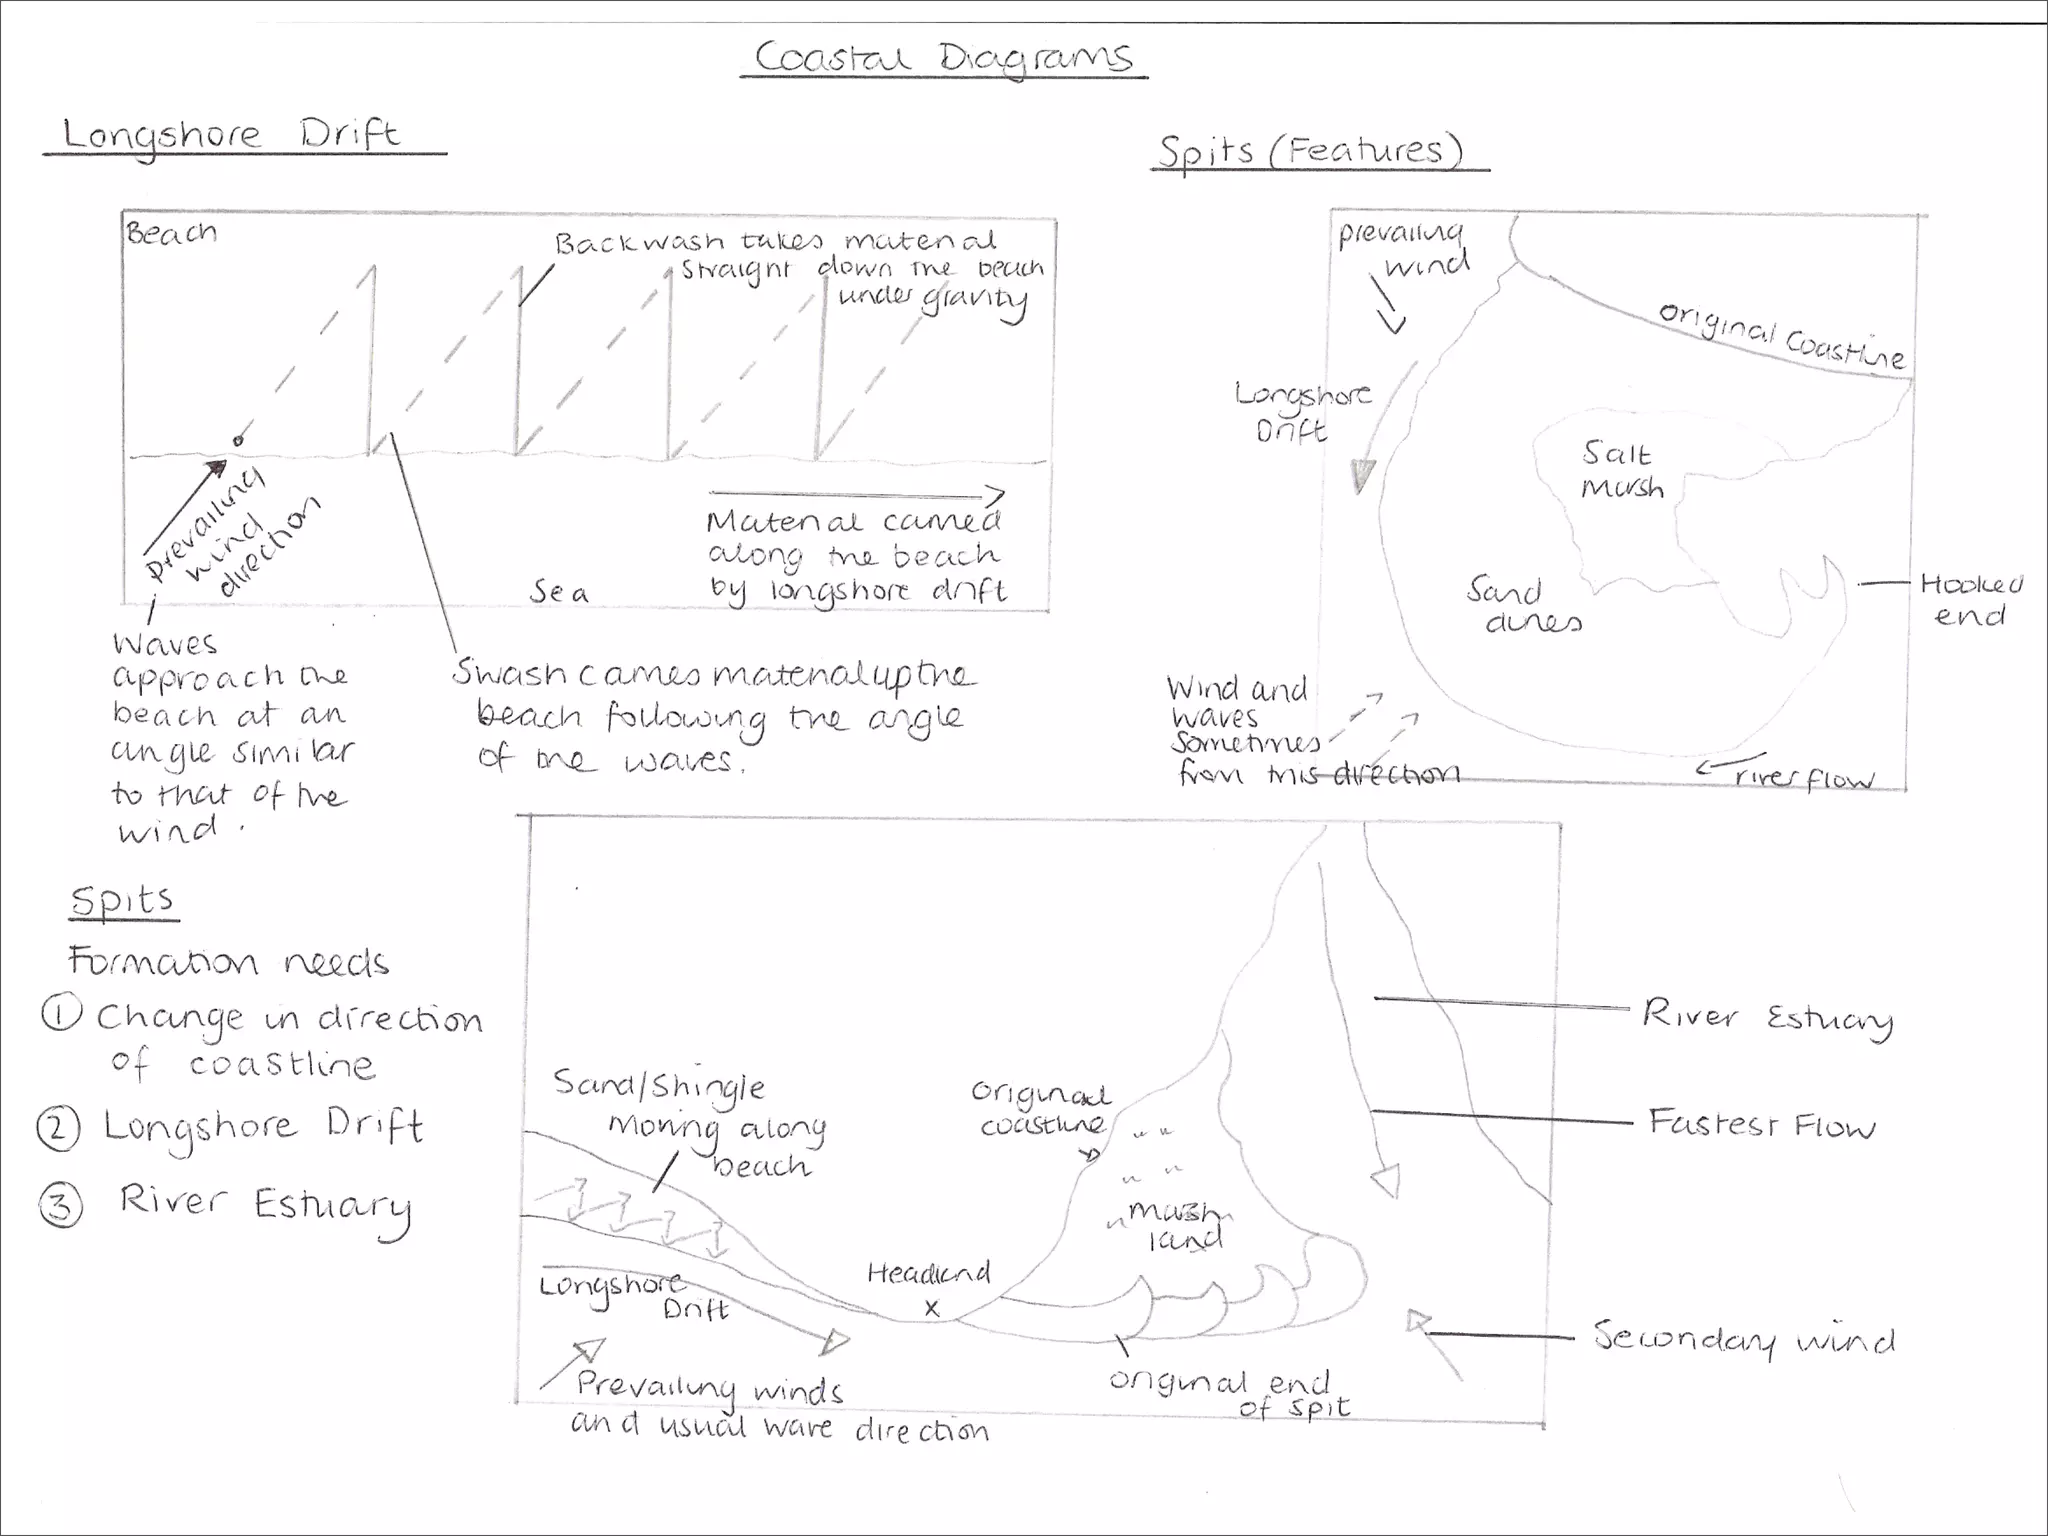 Coastal Diagrams
Longshore Drift
Beach
Backwash takes material
straight down the beach
under gravity
Prevailing
wind
direction
Material carried
along the beach
by longshore drift
Sea
Waves
approach the
beach at an
angle similar
to that of the
wind.
Swash carries material up the
beach following the angle
of the waves.
Spits (Features)
prevailing
wind
original coastline
Longshore
Drift
Salt
marsh
Sand
dunes
Hooked
end
Wind and
waves
sometimes
from this direction
river flow
Spits
Formation needs
① Change in direction
of coastline
② Longshore Drift
③ River Estuary
Sand/Shingle
moving along
beach
original
coastline
Marsh
land
River Estuary
Fastest Flow
Headland
x
Longshore
Drift
Seconday wind
Prevailing winds
and usual wave direction
original end
of spit